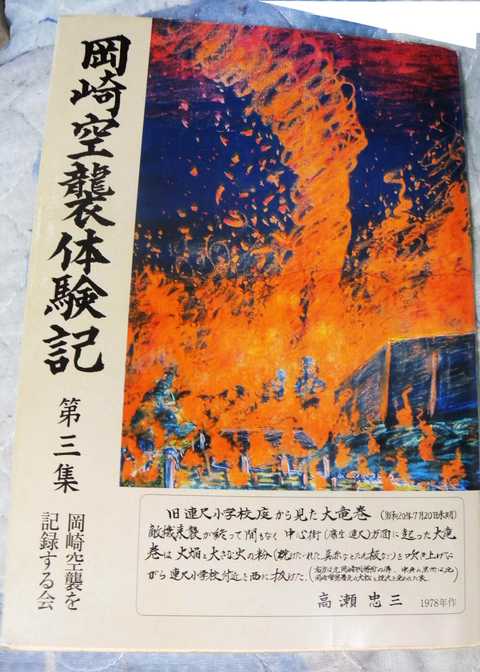 岡崎空襲体験記
第三集
岡崎空襲を
記録する会
旧連尺小学校庭から見た大竜巻（昭和20年7月20日未明）
敵機来襲が終って間もなく中心街（康生連尺）方面に起った大竜
巻は火焔と大きな火の粉（焼けたれた、真赤なとたん板など）を吹き上げな
がら連尺小学校付近を西に抜けた。
高瀬忠三
1978年作